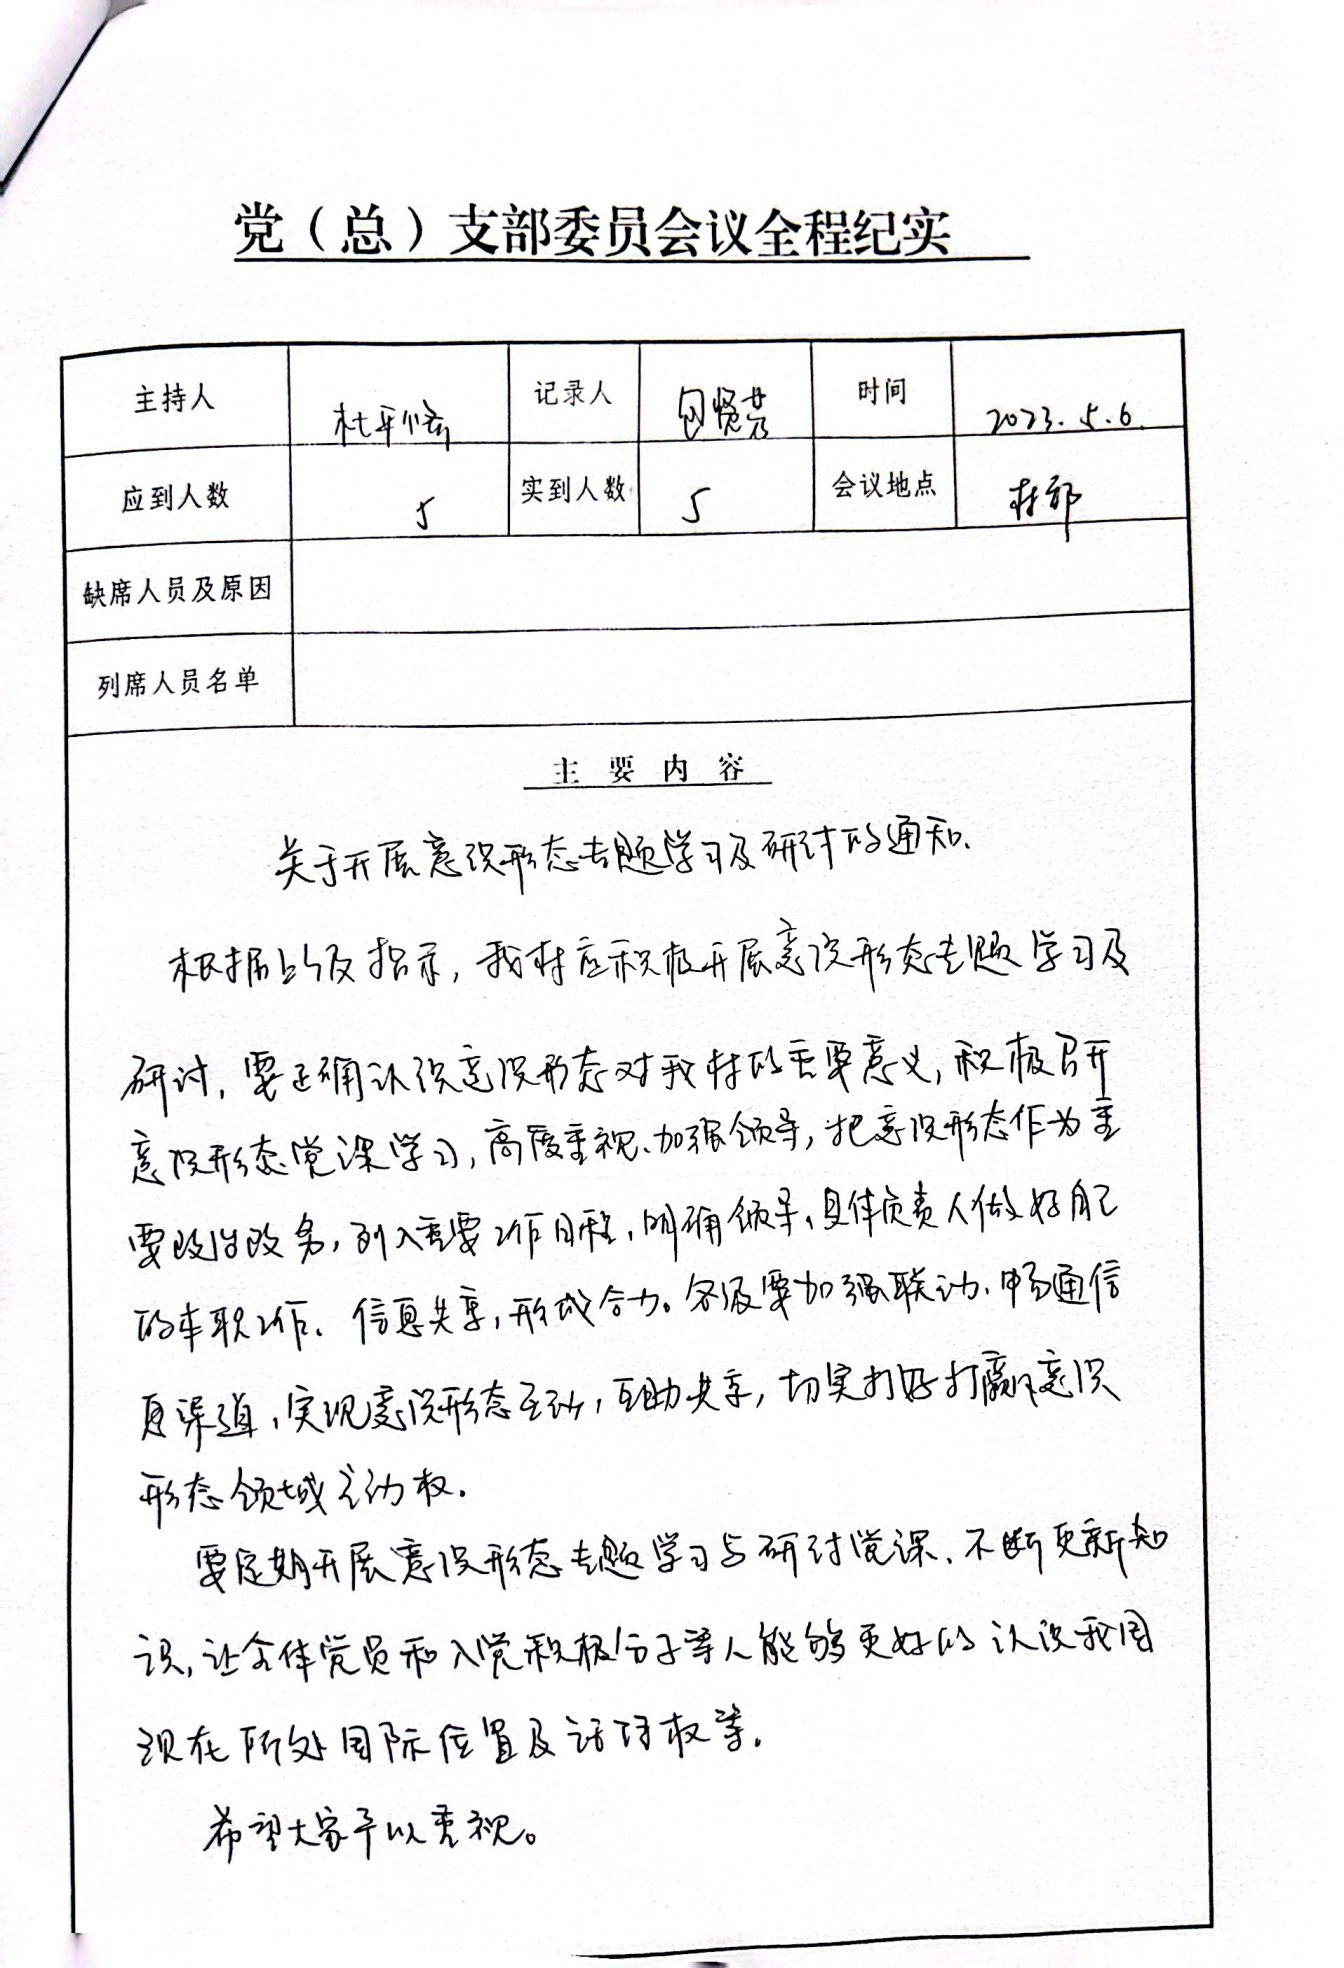 党（总）支部委员会议全程纪实
主持人 杜平 记录人 包贤芬 时间 2023.5.6.
应到人数 5 实到人数 5 会议地点 村部
缺席人员及原因
列席人员名单
主要内容
关于开展意识形态专题学习及研讨的通知.
根据上级及指示，我村应积极开展意识形态专题学习及
研访，要正确认识意识形态对我村的重要意义，积极召开
意识形态党课学习，高度重视、加强领导，把意识形态作为重
要政治政务，列入重要工作日程，明确领导、具体负责人做好自己
的本职工作、信息共享，形成合力。各级要加强联动、畅通信
息渠道，实现意识形态互动，互助共享，切实打好打赢意识
形态领域主动权.
要定期开展意识形态专题学习与研讨党课、不断更新知
识，让全体党员和入党积极分子等人能够更好的认识我国
现在所处国际位置及话语权等.
希望大家予以重视。